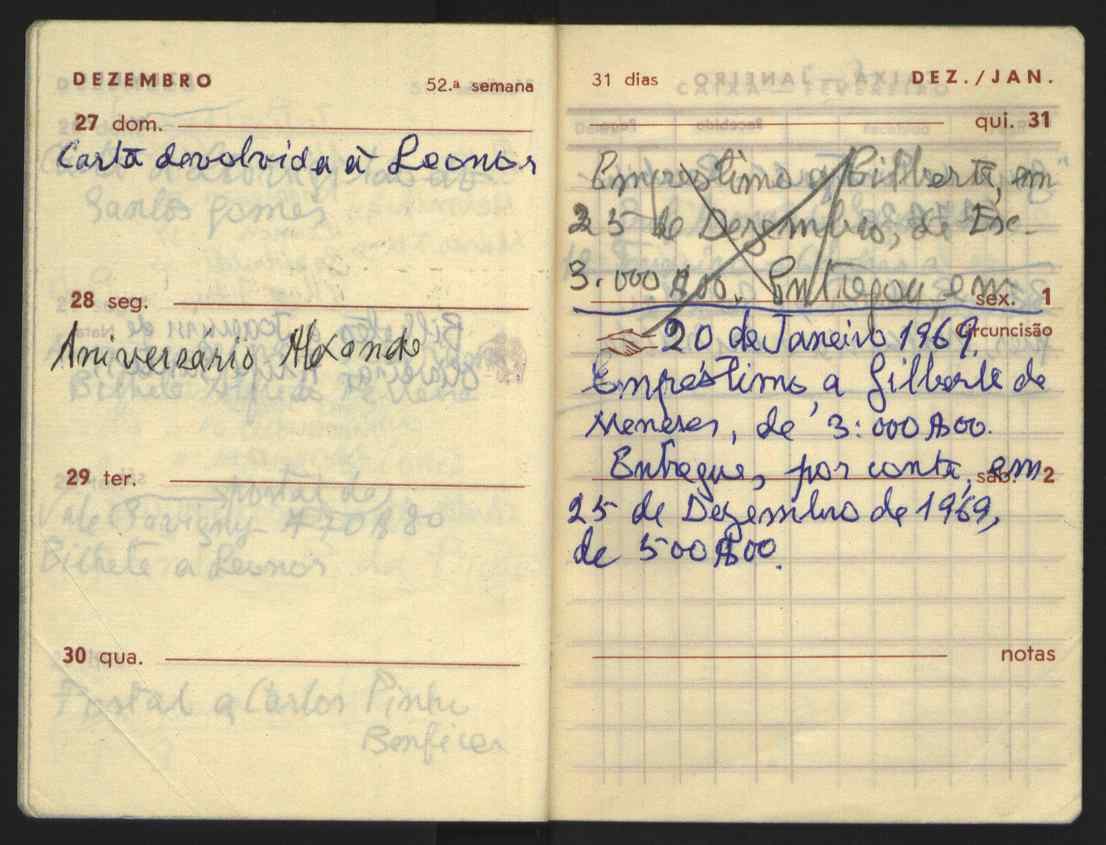 DEZEMBRO 52.ª semana
27 dom.
Carta devolvida à Leonor
Santos Gomes
28 seg.
Aniversario
Bilhete
29 ter.
Bilhete a Leonor
30 qua.
Postal a Carlos Pinho
Benfica
31 dias DEZ./JAN.
qui. 31
Emprestimo a Gilberta, em
25 de Dezembro, de Esc.
3.000$00. Entregou, em
sex. 1
Circuncisão
20 de Janeiro 1969.
Empréstimo a Gilberta de
Meneses, de 3:000$00.
Entregue, por conta, em
sáb. 2
25 de Dezembro de 1969,
de 500$00.
notas